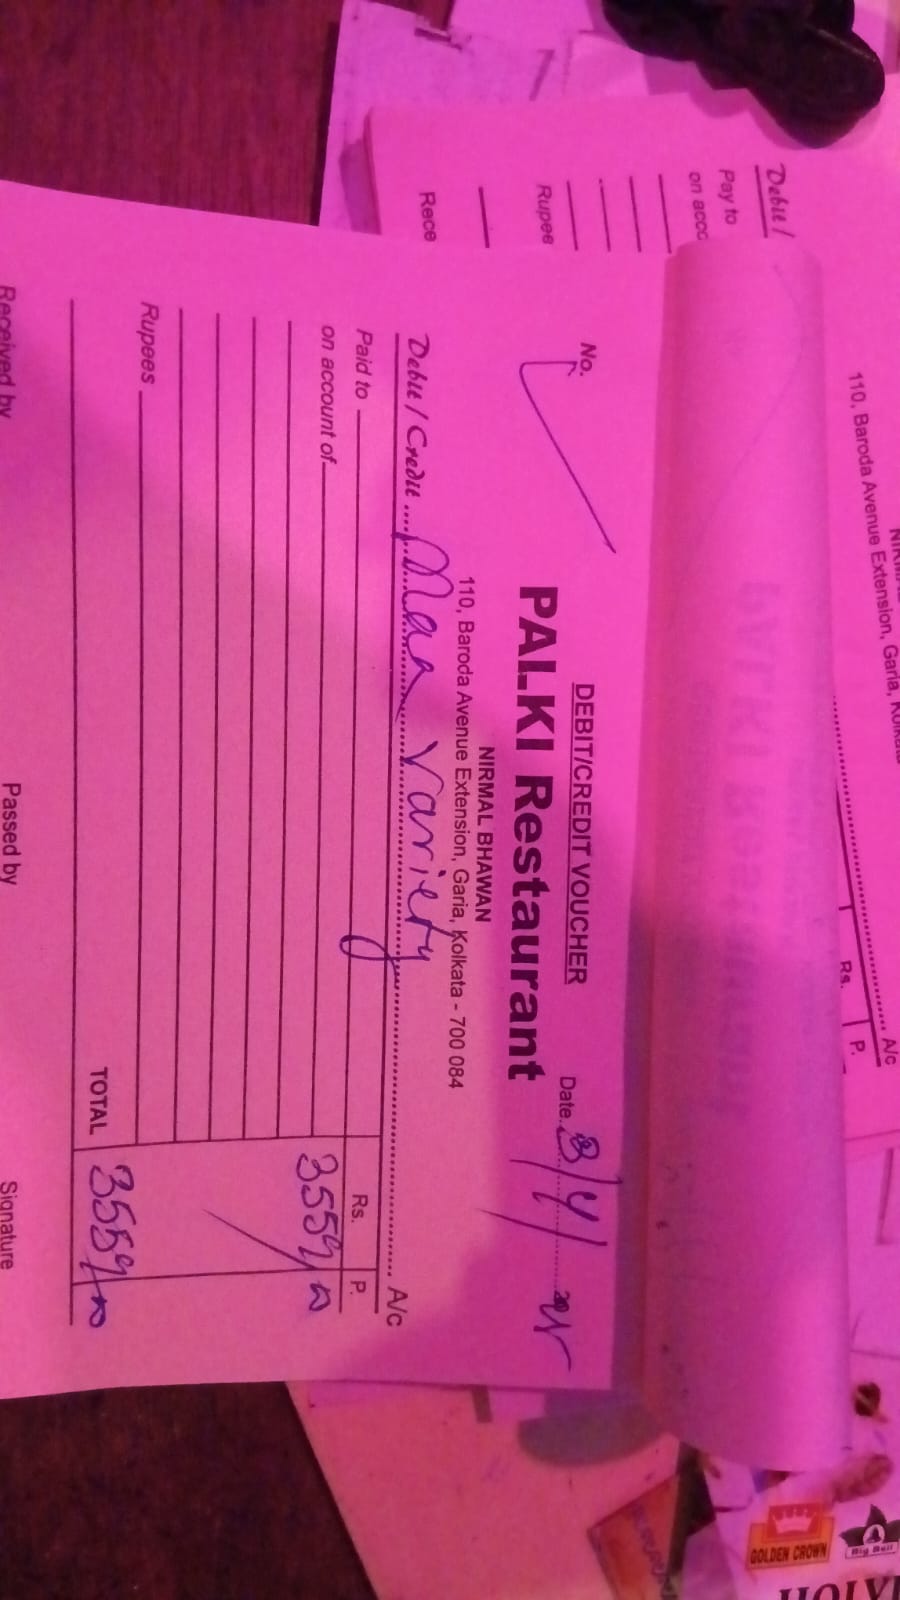 DEBIT/CREDIT VOUCHER
No.
Date. 8/4/
PALKI Restaurant
NIRMAL BHAWAN
110, Baroda Avenue Extension, Garia, Kolkata - 700 084
Debit / Credit Maa Variety A/c
Paid to Rs. P.
on account of 3559/00
Rupees
TOTAL 3559/00
Received by Passed by Signature
110, Baroda Avenue Extension, Garia,
A/c
Rs. P.
Debit /
Pay to
on acco
Rupee
Rece
GOLDEN CROWN
Big Bull